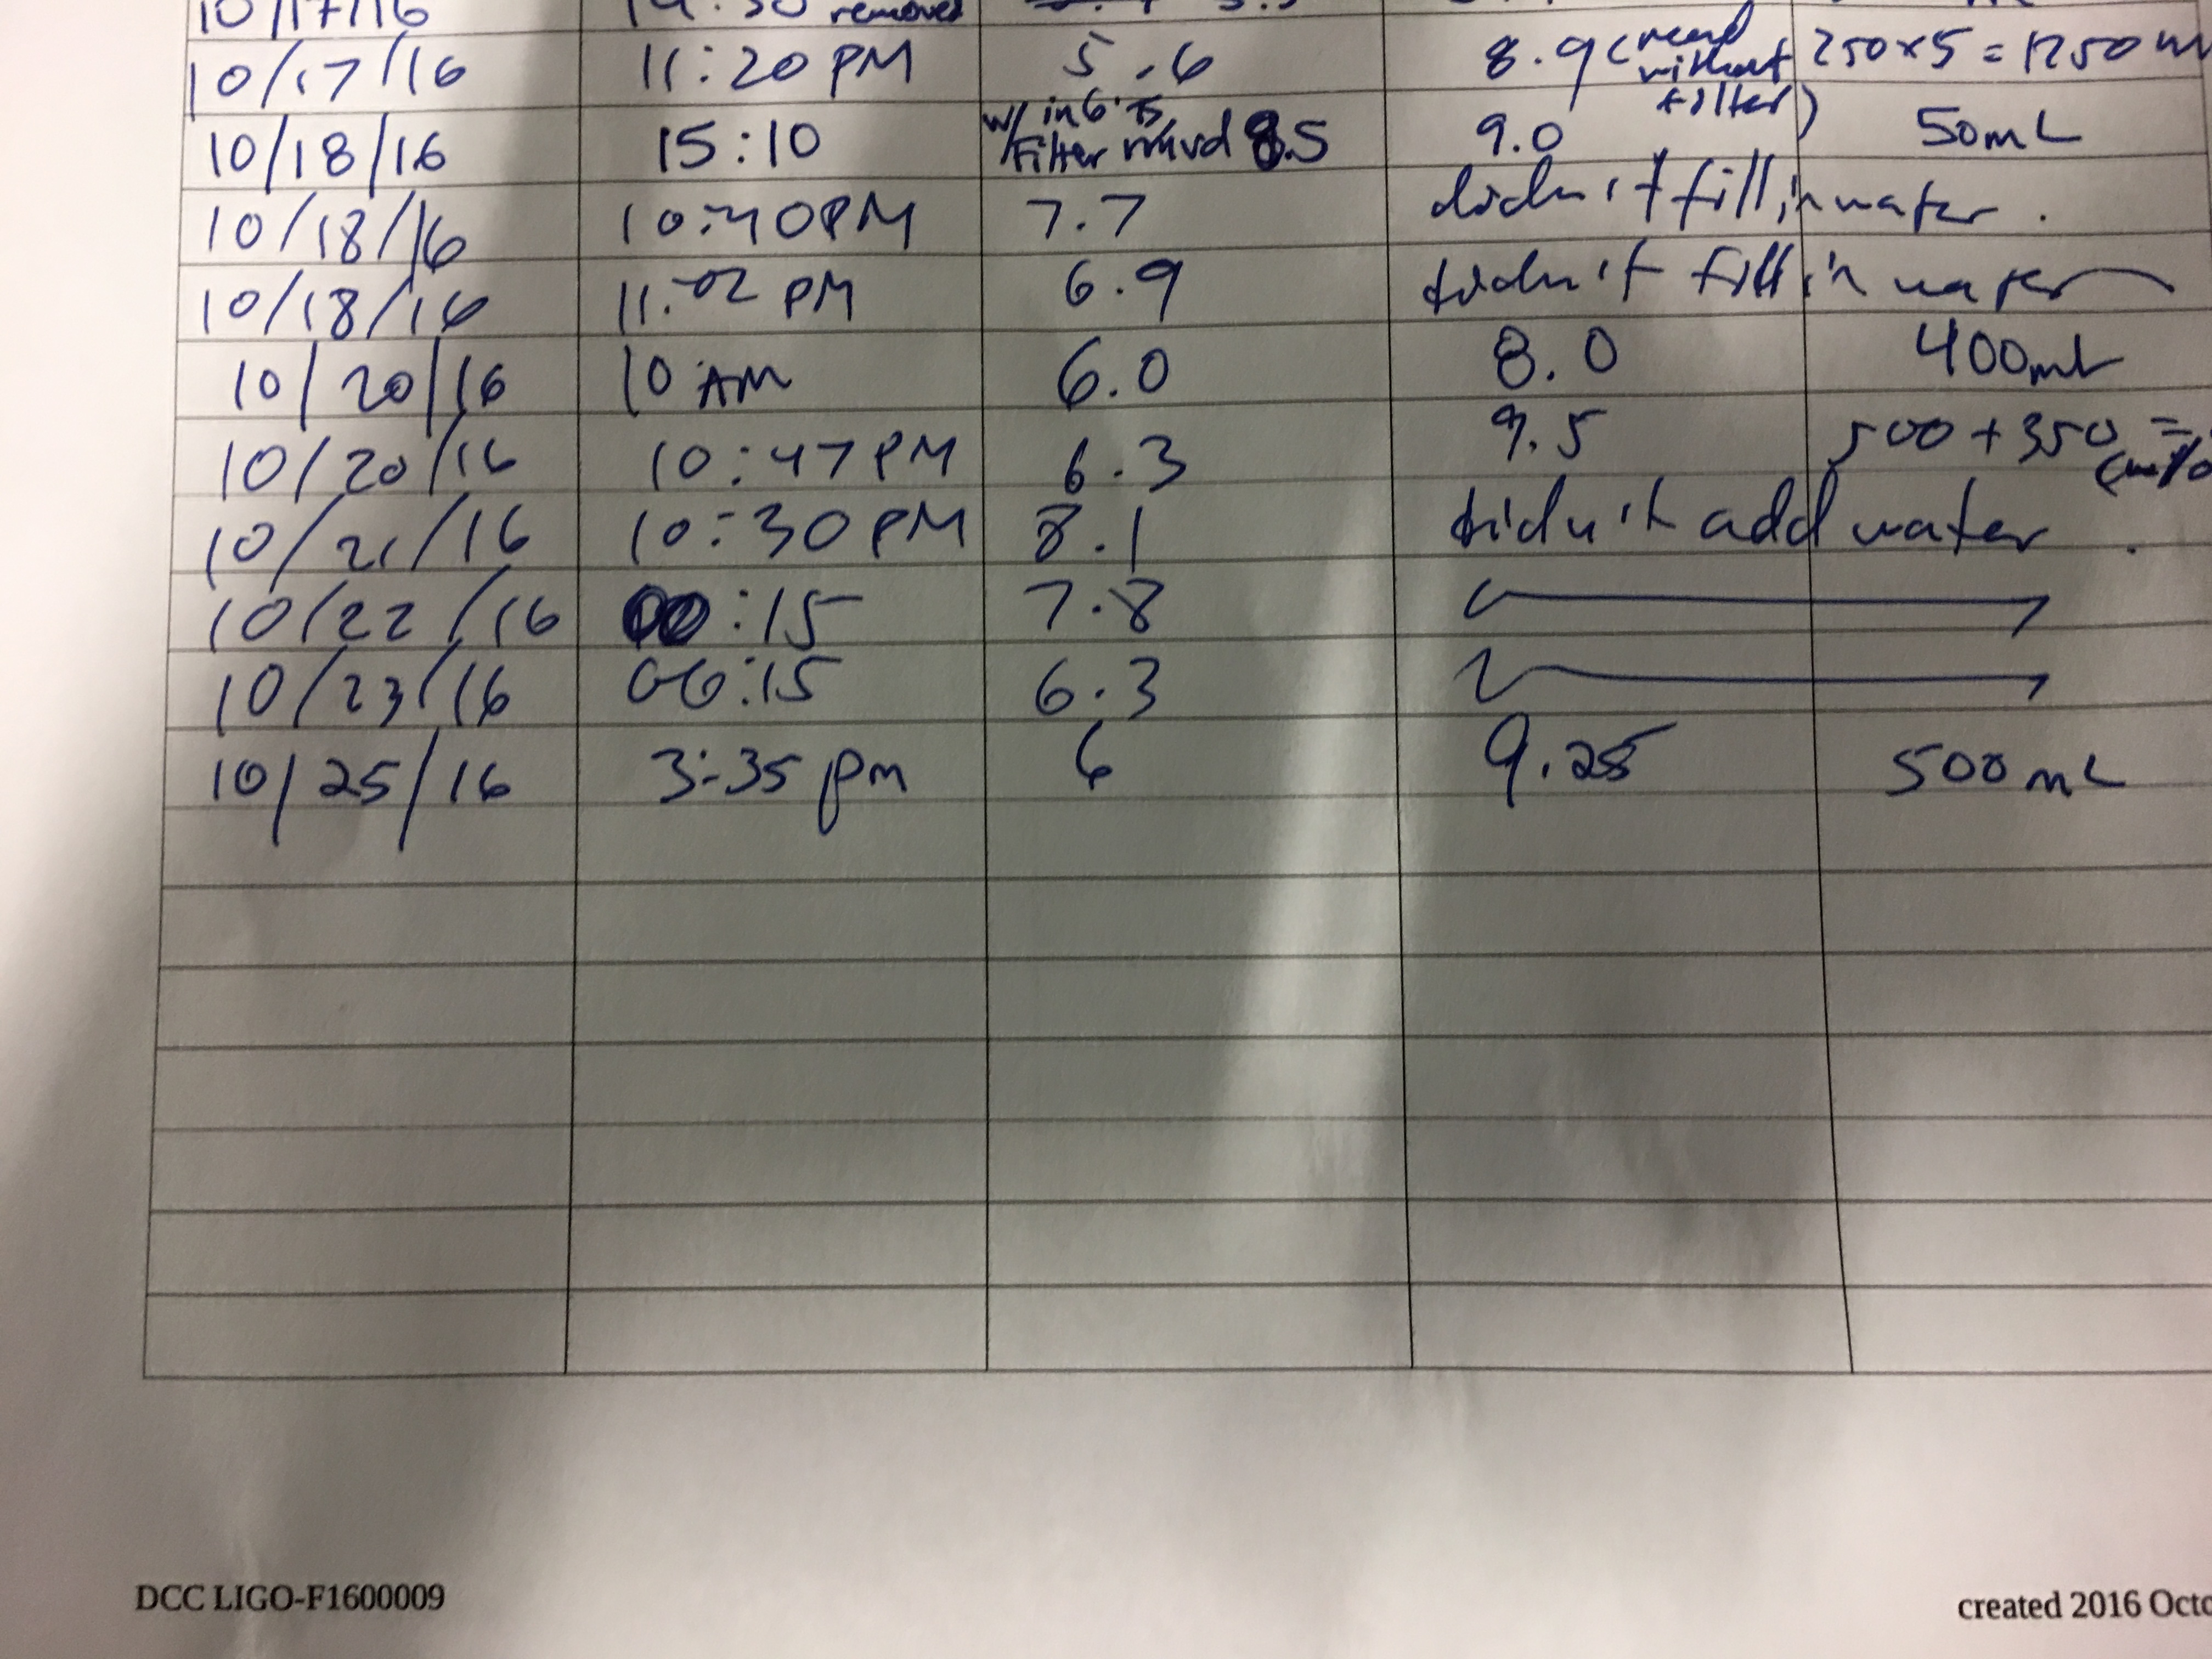 10/17/16 removed
10/17/16 11:20 PM 5.6 8.9 (read without filter) 250x5 = 1250 m
10/18/16 15:10 w/ filter 8.5 9.0 50mL
10/18/16 10:40PM 7.7 didn't fill in water.
10/18/16 11:02 PM 6.9 didn't fill in water
10/20/16 10 AM 6.0 8.0 400mL
10/20/16 10:47 PM 6.3 9.5 500 + 350 =
10/21/16 10:30 PM 8.1 didn't add water.
10/22/16 00:15 7.8
10/23/16 00:15 6.3
10/25/16 3:35 pm 6 9.25 500mL
DCC LIGO-F1600009 created 2016 Octo